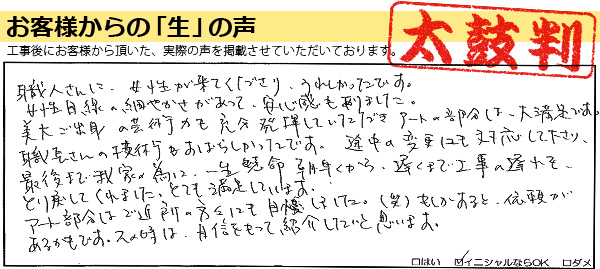 お客様からの「生」の声
工事後にお客様から頂いた、実際の声を掲載させていただいております。
太鼓判
職人さんに、女性が来てくださり、うれしかったです。
女性目線の細やかさがあって、安心感もありました。
美大ご出身の芸術力も充分発揮していただきアートの部分は、大満足です。
職長さんの技術もすばらしかったです。途中の変更にも対応して下さり、
最後まで我家の為に、一生懸命、朝早くから、遅くまで工事の遅れを、
とり戻してくれました。とても満足しています。
アート部分はご近所の方々にも自慢しました。(笑)もしかすると、依頼が
あるかもです。その時は、自信をもって紹介したいと思います。
□はい ☑イニシャルならOK □ダメ